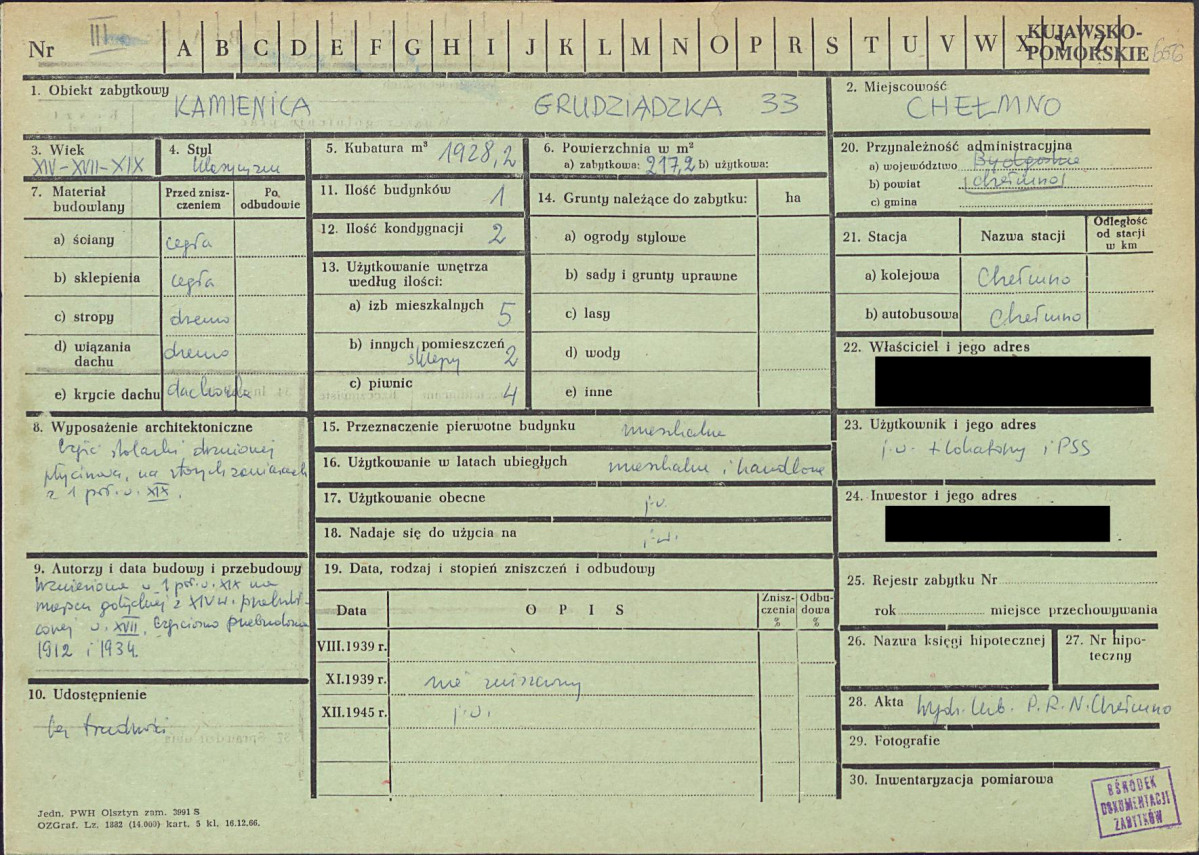 Nr III A B C D E F G H I J K L M N O P R S T U V W X Y Z
KUJAWSKO-
POMORSKIE
1. Obiekt zabytkowy
KAMIENICA GRUDZIĄDZKA 33
2. Miejscowość
CHEŁMNO
3. Wiek
XIV-XVII-XIX
4. Styl
klasycyzm
5. Kubatura m³ 1928,2
6. Powierzchnia w m²
a) zabytkowa: 217,2 b) użytkowa:
20. Przynależność administracyjna
a) województwo Bydgoskie
b) powiat Chełmno
c) gmina
7. Materiał
budowlany
Przed znisz-
czeniem
Po
odbudowie
a) ściany cegła
b) sklepienia cegła
c) stropy drewno
d) wiązania
dachu drewno
e) krycie dachu dachówka
11. Ilość budynków 1
12. Ilość kondygnacji 2
13. Użytkowanie wnętrza
według ilości:
a) izb mieszkalnych 5
b) innych pomieszczeń
sklepy 2
c) piwnic 4
14. Grunty należące do zabytku: ha
a) ogrody stylowe
b) sady i grunty uprawne
c) lasy
d) wody
e) inne
21. Stacja Nazwa stacji
Odległość
od stacji
w km
a) kolejowa Chełmno
b) autobusowa Chełmno
22. Właściciel i jego adres
8. Wyposażenie architektoniczne
Część stolarki drzwiowej
płycinowa, na starych zawiasach
z 1 poł. w. XIX.
15. Przeznaczenie pierwotne budynku mieszkalne
16. Użytkowanie w latach ubiegłych mieszkalne i handlowe
17. Użytkowanie obecne j.w.
18. Nadaje się do użycia na j.w.
23. Użytkownik i jego adres
j.w. + lokatorzy i PSS
24. Inwestor i jego adres
9. Autorzy i data budowy i przebudowy
Wzniesiona w 1 poł. w. XIX na
miejscu gotyckiej z XIV w. przekształ-
conej w. XVII. Częściowo przebudowana
1912 i 1934
10. Udostępnienie
bez trudności
19. Data, rodzaj i stopień zniszczeń i odbudowy
Data OPIS
Znisz-
czenia
%
Odbu-
dowa
%
VIII.1939 r.
XI.1939 r. nie zniszczony
XII.1945 r. j.w.
25. Rejestr zabytku Nr
rok miejsce przechowywania
26. Nazwa księgi hipotecznej
27. Nr hipo-
teczny
28. Akta Wydz. Kult. P.R.N. Chełmno
29. Fotografie
30. Inwentaryzacja pomiarowa
OŚRODEK
DOKUMENTACJI
ZABYTKÓW
Jedn. PWH Olsztyn zam. 3991 S
OZGraf. Lz. 1882 (14.000) kart. 5 kl. 16.12.66.